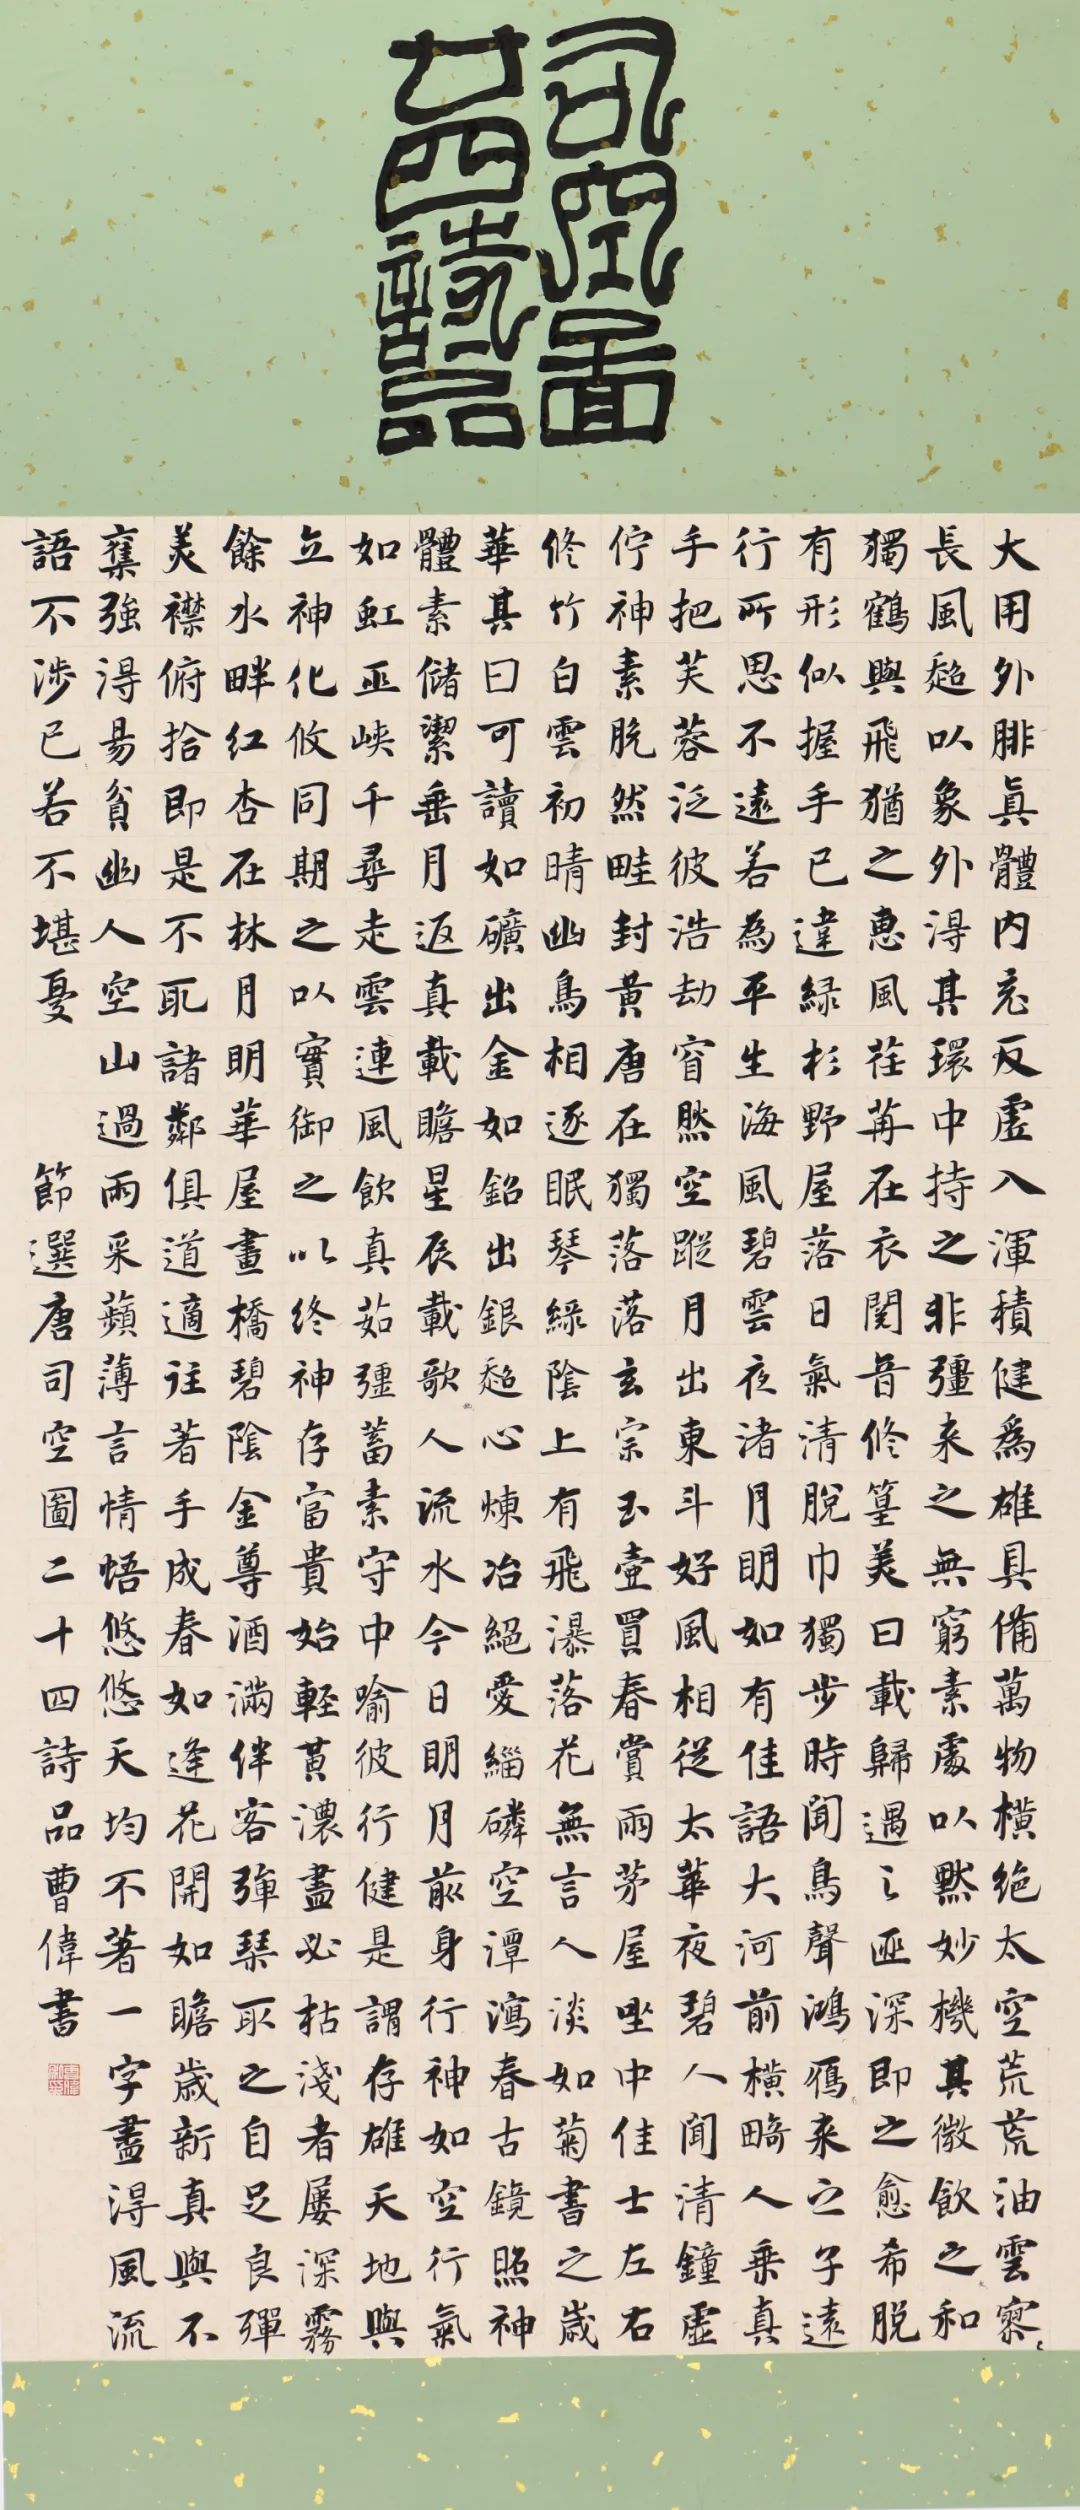 司空圖
廿四詩品
大用外腓眞體内充反虛入渾積健爲雄具備萬物橫絶太空荒荒油雲寥〻
長風超以象外得其環中持之非彊来之無窮素處以默妙機其微飲之和
獨鶴與飛猶之惠風荏苒在衣閱音修篁美曰載歸遇之匪深即之愈希脱
有形似握手已違緑杉野屋落日氣清脱巾獨步時聞鳥聲鴻雁来之子遠
行所思不遠若為平生海風碧雲夜渚月明如有佳語大河前橫畸人乘真
手把芙蓉泛彼浩劫窅然空蹤月出東斗好風相從太華夜碧人聞清鐘虛
佇神素脱然畦封黄唐在獨落落玄宗玉壺買春賞雨茅屋坐中佳士左右
修竹白雲初晴幽鳥相逐眠琴緑陰上有飛瀑落花無言人淡如菊書之歲
華其曰可讀如礦出金如鉛出銀超心煉冶絕愛緇磷空潭瀉春古鏡照神
體素儲潔垂月返真載瞻星辰載歌人流水今日明月前身行神如空行氣
如虹巫峽千尋走雲連風飲真茹彊蓄素守中喻彼行健是謂存雄天地與
立神化攸同期之以實御之以終神存富貴始輕黄濃盡必枯淺者屢深霧
餘水畔紅杏在林月明華屋畫橋碧陰金尊酒滿伴客彈琴取之自足良殫
美襟俯拾即是不取諸鄰俱道適往著手成春如逢花開如瞻歲新真與不
奪強得易貧幽人空山過雨采蘋薄言情悟悠悠天均不著一字盡得風流
語不涉已若不堪憂 節選唐司空圖二十四詩品曹偉書